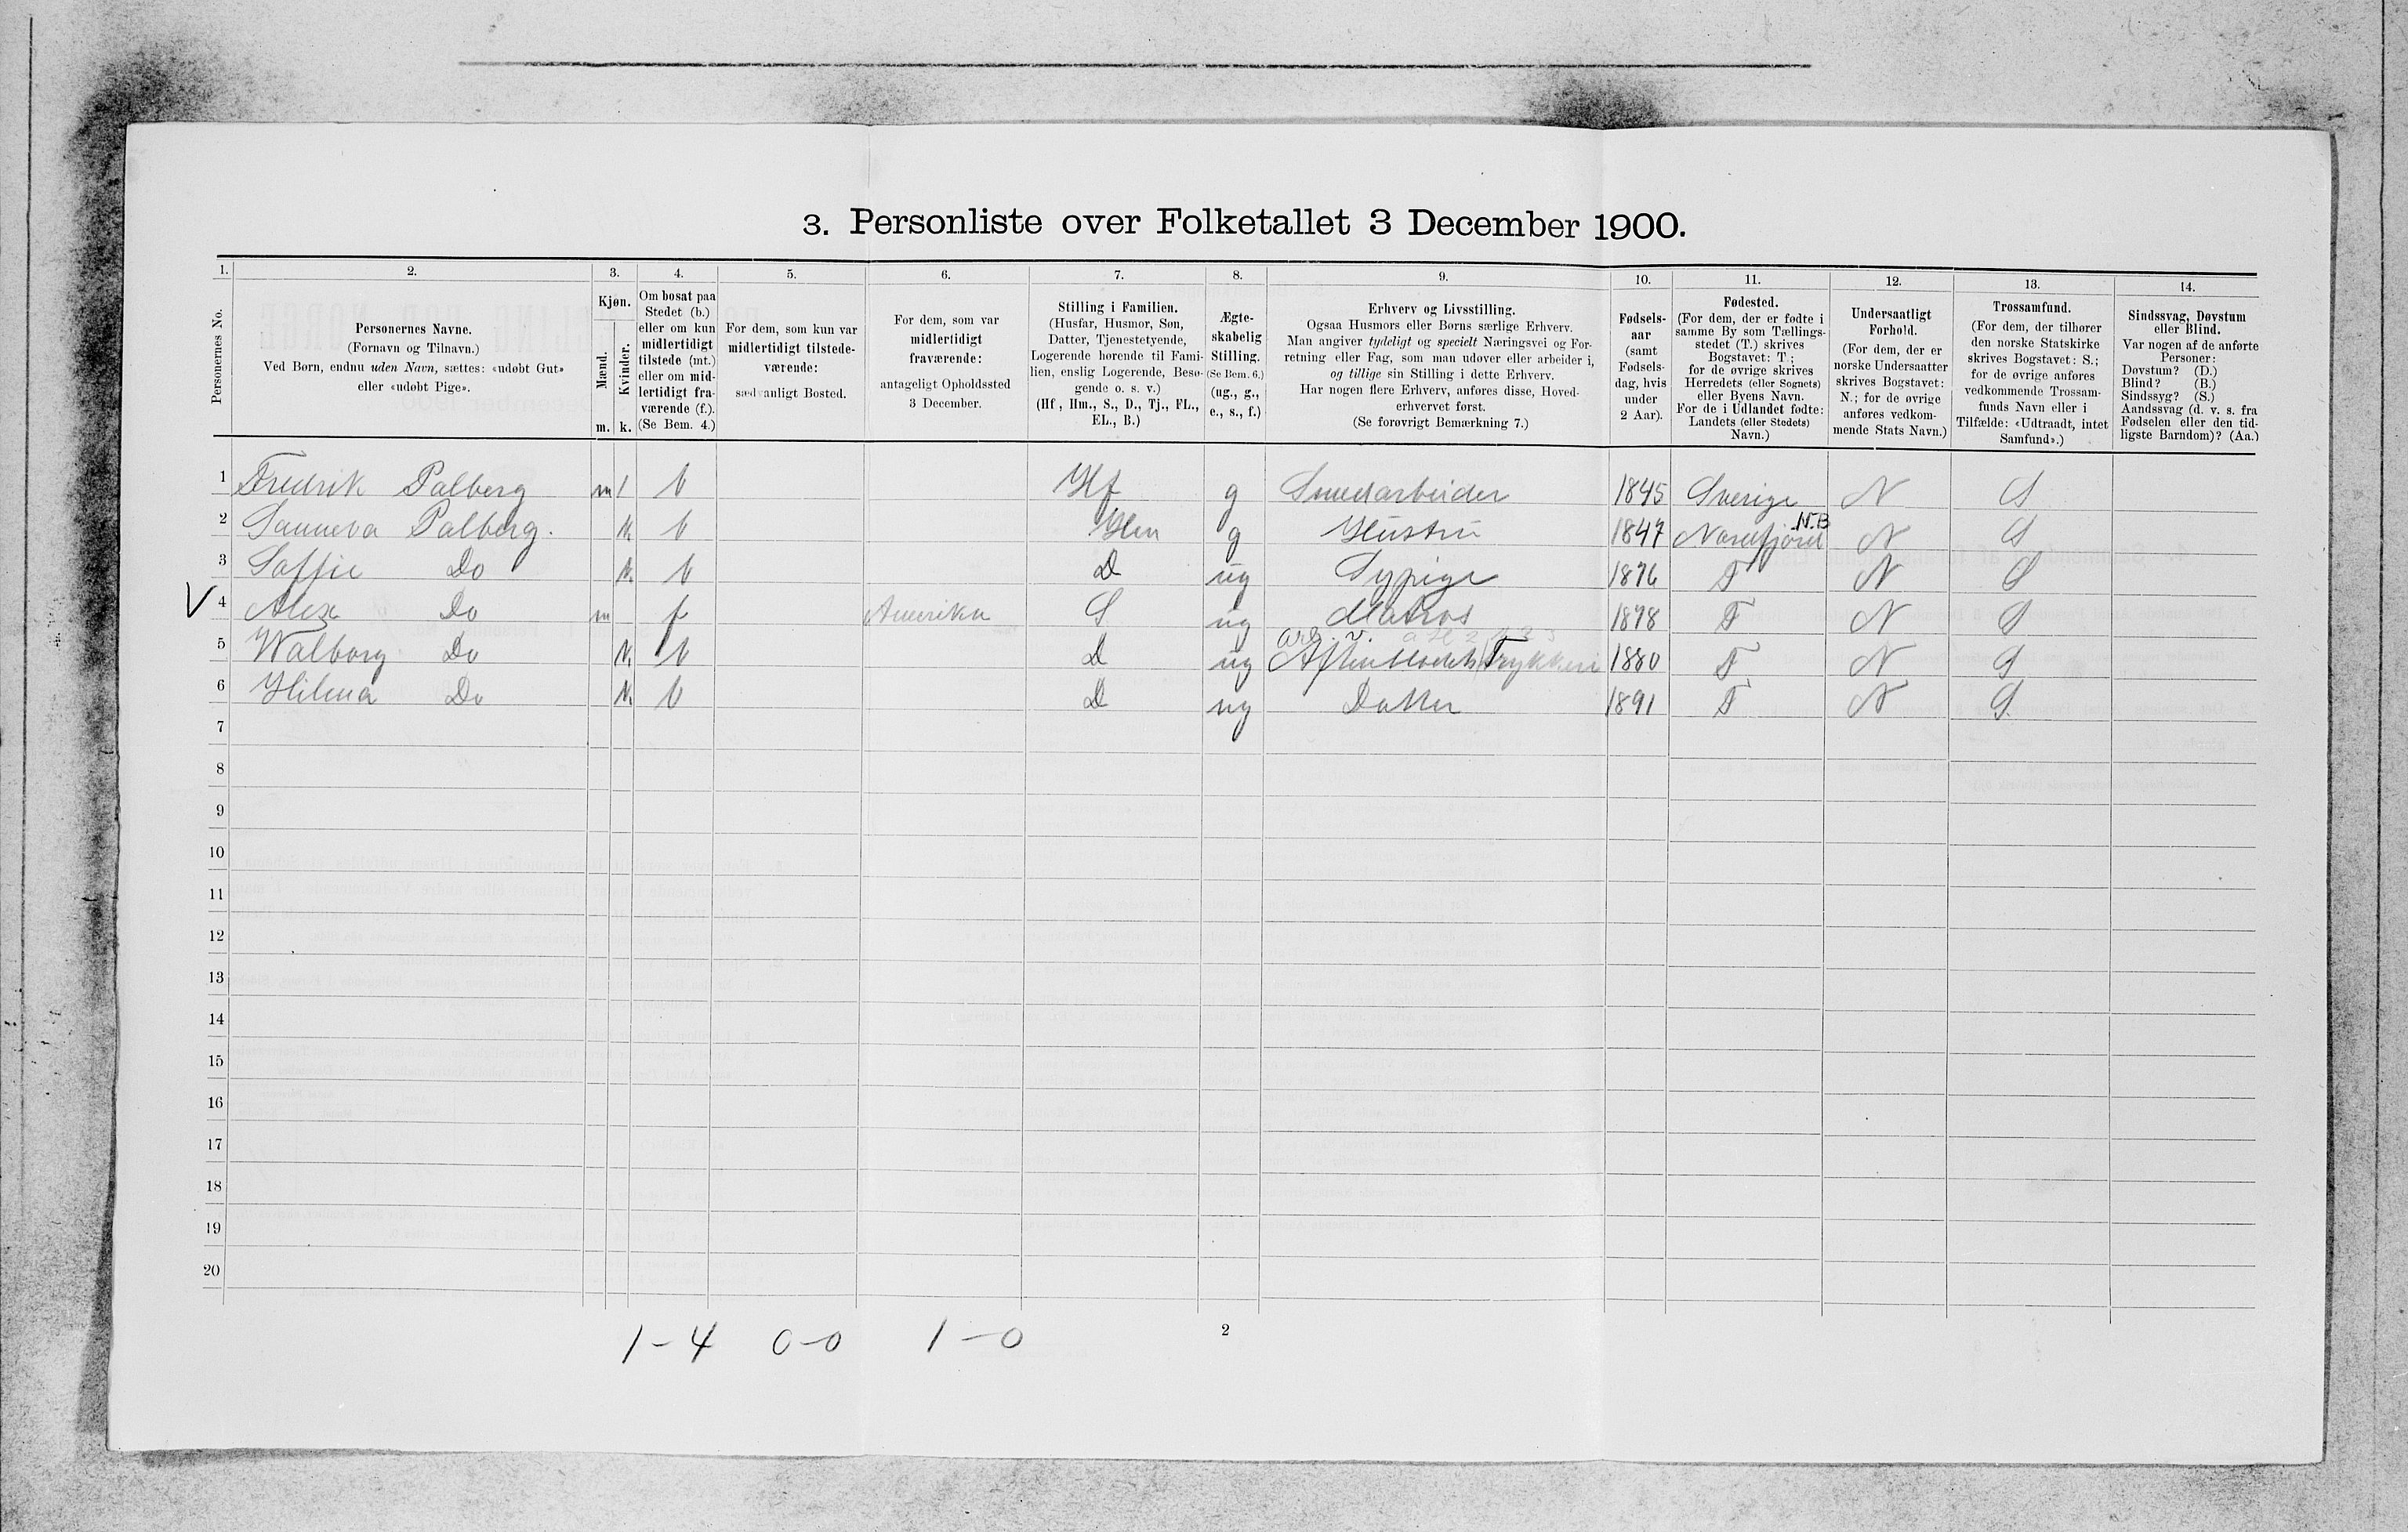 3. Personliste over Folketallet 3 December 1900.
1. 2. 3. 4. 5. 6. 7. 8. 9. 10. 11. 12. 13. 14.
Personernes No.
Personernes Navne.
(Fornavn og Tilnavn.)
Ved Børn, endnu uden Navn, sættes: «udøbt Gut»
eller «udøbt Pige».
Kjøn.
Mænd.
Kvinder.
m. k.
Om bosat paa
Stedet (b.)
eller om kun
midlertidigt
tilstede (mt.)
eller om mid-
lertidigt fra-
værende (f.).
(Se Bem. 4.)
For dem, som kun var
midlertidigt tilstede-
værende:
sædvanligt Bosted.
For dem, som var
midlertidigt
fraværende:
antageligt Opholdssted
3 December.
Stilling i Familien.
(Husfar, Husmor, Søn,
Datter, Tjenestetyende,
Logerende hørende til Fami-
lien, enslig Logerende, Besø-
gende o. s. v.)
(Hf, Hm., S., D., Tj., FL.,
EL., B.)
Ægte-
skabelig
Stilling.
(Se Bem. 6.)
(ug., g.,
e., s., f.)
Erhverv og Livsstilling.
Ogsaa Husmors eller Børns særlige Erhverv.
Man angiver tydeligt og specielt Næringsvei og For-
retning eller Fag, som man udøver eller arbeider i,
og tillige sin Stilling i dette Erhverv.
Har nogen flere Erhverv, anføres disse, Hoved-
erhvervet først.
(Se forøvrigt Bemærkning 7.)
Fødsels-
aar
(samt
Fødsels-
dag, hvis
under
2 Aar).
Fødested.
(For dem, der er fødte i
samme By som Tællings-
stedet (T.) skrives
Bogstavet: T.;
for de øvrige skrives
Herredets (eller Sognets)
eller Byens Navn.
For de i Udlandet fødte:
Landets (eller Stedets)
Navn.)
Undersaatligt
Forhold.
(For dem, der er
norske Undersaatter
skrives Bogstavet:
N.; for de øvrige
anføres vedkom-
mende Stats Navn.)
Trossamfund.
(For dem, der tilhører
den norske Statskirke
skrives Bogstavet: S.;
for de øvrige anføres
vedkommende Trossam-
funds Navn eller i
Tilfælde: «Udtraadt, intet
Samfund».)
Sindssvag, Døvstum
eller Blind.
Var nogen af de anførte
Personer:
Døvstum? (D.)
Blind? (B.)
Sindssyg? (S.)
Aandssvag (d. v. s. fra
Fødselen eller den tid-
ligste Barndom)? (Aa.)
1 Fredrik Palberg m b Hf g Smedarbeider 1845 Sverige N S
N.B
2 Sanneva Palberg. k. b Hm g Hustru 1847 Nordfjord N S
3 Soffie Do k. b D ug Sypige 1876 T N S
V 4 Alex Do m f Amerika S ug Matros 1878 T N S
arb. v.
5 Walborg Do k. b D ug Aftenbladets Trykkeri 1880 T N S
6 Hilma Do k. b D ug Datter 1891 T N S
7
8
9
10
11
12
13
14
15
16
17
18
19
20
1-4 0-0 1-0
2